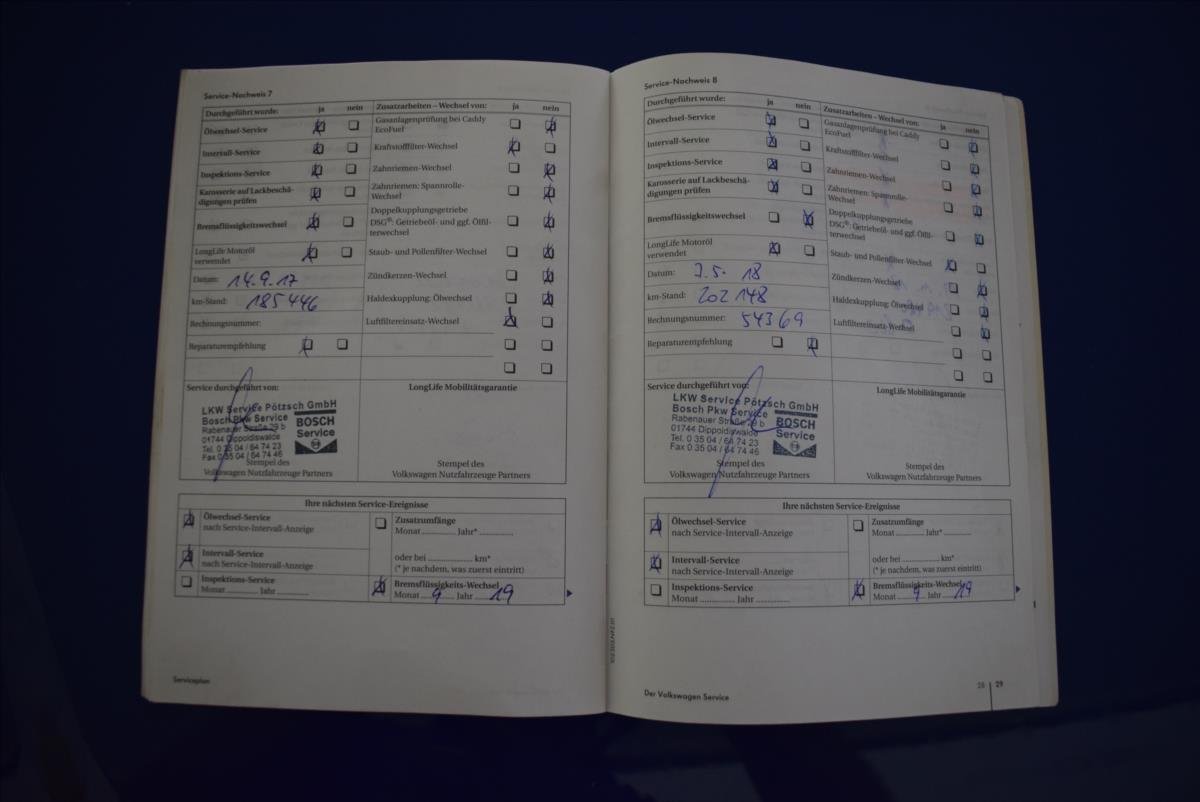 Service-Nachweis 7
Durchgeführt wurde: ja nein
Ölwechsel-Service
Intervall-Service
Inspektions-Service
Karosserie auf Lackbeschä-
digungen prüfen
Bremsflüssigkeitswechsel
LongLife Motoröl
verwendet
Datum: 14.9.17
km-Stand: 185446
Rechnungsnummer:
Reparaturempfehlung
Zusatzarbeiten – Wechsel von: ja nein
Gasanlagenprüfung bei Caddy
EcoFuel
Kraftstofffilter-Wechsel
Zahnriemen-Wechsel
Zahnriemen: Spannrolle-
Wechsel
Doppelkupplungsgetriebe
DSG®: Getriebeöl- und ggf. Ölfil-
terwechsel
Staub- und Pollenfilter-Wechsel
Zündkerzen-Wechsel
Haldexkupplung: Ölwechsel
Luftfiltereinsatz-Wechsel
Service durchgeführt von:
LKW Service Pötzsch GmbH
Bosch Pkw Service
Rabenauer Straße 29 b
01744 Dippoldiswalde
Tel. 0 35 04 / 64 74 23
Fax 0 35 04 / 64 74 46
BOSCH
Service
Stempel des
Volkswagen Nutzfahrzeuge Partners
LongLife Mobilitätsgarantie
Stempel des
Volkswagen Nutzfahrzeuge Partners
Ihre nächsten Service-Ereignisse
Ölwechsel-Service
nach Service-Intervall-Anzeige
Intervall-Service
nach Service-Intervall-Anzeige
Inspektions-Service
Monat ............ Jahr ............
Zusatzumfänge
Monat ............ Jahr* ............
oder bei ................ km*
(* je nachdem, was zuerst eintritt)
Bremsflüssigkeits-Wechsel
Monat 9 Jahr 19
Serviceplan
Service-Nachweis 8
Durchgeführt wurde: ja nein
Ölwechsel-Service
Intervall-Service
Inspektions-Service
Karosserie auf Lackbeschä-
digungen prüfen
Bremsflüssigkeitswechsel
LongLife Motoröl
verwendet
Datum: 7.5. 18
km-Stand: 202 148
Rechnungsnummer: 54369
Reparaturempfehlung
Zusatzarbeiten – Wechsel von: ja nein
Gasanlagenprüfung bei Caddy
EcoFuel
Kraftstofffilter-Wechsel
Zahnriemen-Wechsel
Zahnriemen: Spannrolle-
Wechsel
Doppelkupplungsgetriebe
DSG®: Getriebeöl- und ggf. Ölfil-
terwechsel
Staub- und Pollenfilter-Wechsel
Zündkerzen-Wechsel
Haldexkupplung: Ölwechsel
Luftfiltereinsatz-Wechsel
Service durchgeführt von:
LKW Service Pötzsch GmbH
Bosch Pkw Service
Rabenauer Straße 29 b
01744 Dippoldiswalde
Tel. 0 35 04 / 64 74 23
Fax 0 35 04 / 64 74 46
BOSCH
Service
Stempel des
Volkswagen Nutzfahrzeuge Partners
LongLife Mobilitätsgarantie
Stempel des
Volkswagen Nutzfahrzeuge Partners
Ihre nächsten Service-Ereignisse
Ölwechsel-Service
nach Service-Intervall-Anzeige
Intervall-Service
nach Service-Intervall-Anzeige
Inspektions-Service
Monat ............ Jahr ............
Zusatzumfänge
Monat ............ Jahr* ............
oder bei ................ km*
(* je nachdem, was zuerst eintritt)
Bremsflüssigkeits-Wechsel
Monat 9 Jahr 19
Der Volkswagen Service
28 29